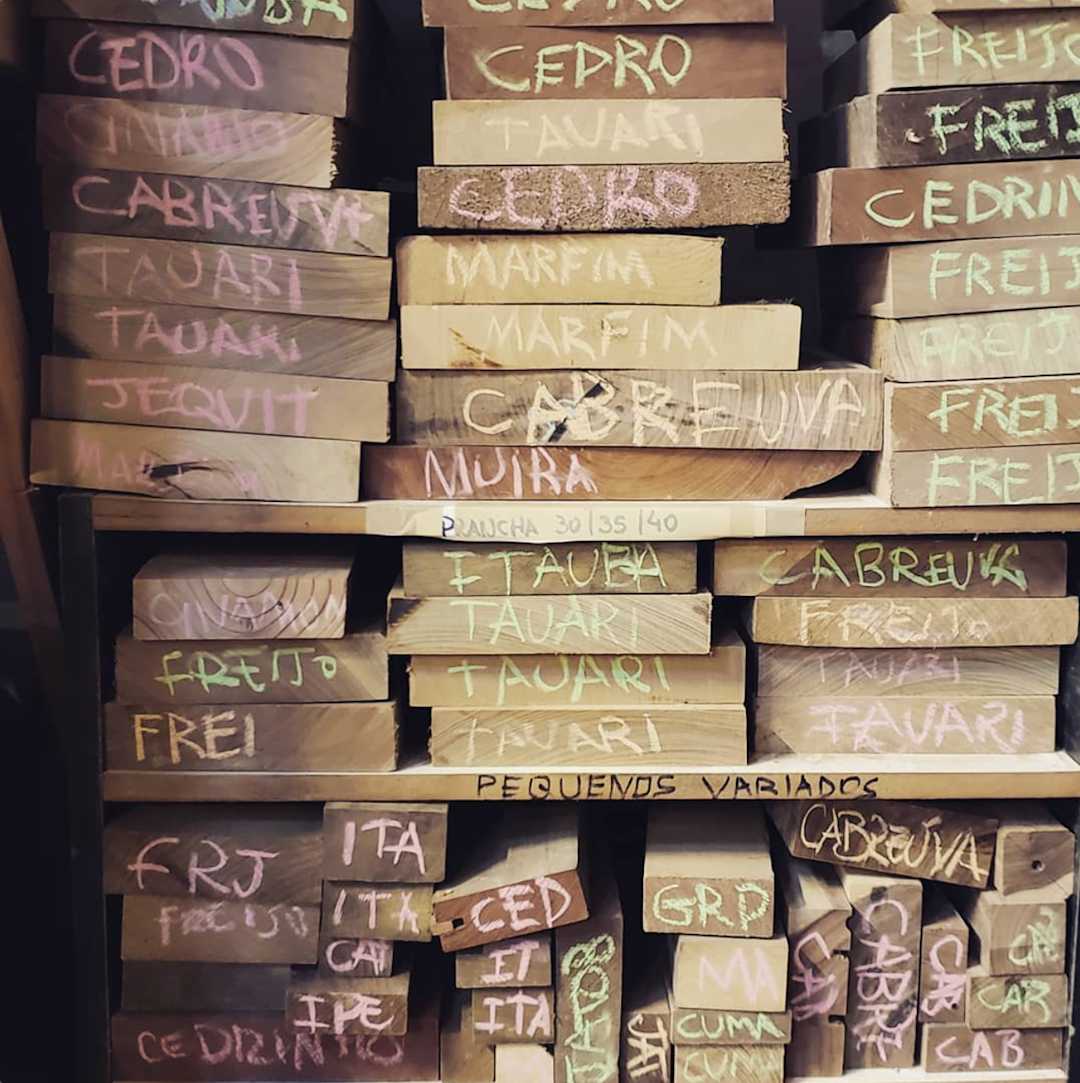 CEDRO
CABREUVA
TAUARI
TAUARI
JEQUIT
CEDRO
CEDRO
TAUARI
CEDRO
MARFIM
MARFIM
CABREUVA
MUIRA
FREIJO
FREIJ
CEDRIN
FREIJ
FREIJ
FREIJ
FREIJ
PRANCHA 30/35/40
FREIJO
FREI
ITAUBA
TAUARI
TAUARI
TAUARI
CABREUVA
FREIJO
TAUARI
TAUARI
PEQUENOS VARIADOS
FRJ
FREIJO
CEDRINHO
ITA
ITA
IPE
CED
IT
ITA
JATOB
JAT
GRP
MA
CUMA
CUMA
CABREUVA
CABRE
CAB
CAR
CAB